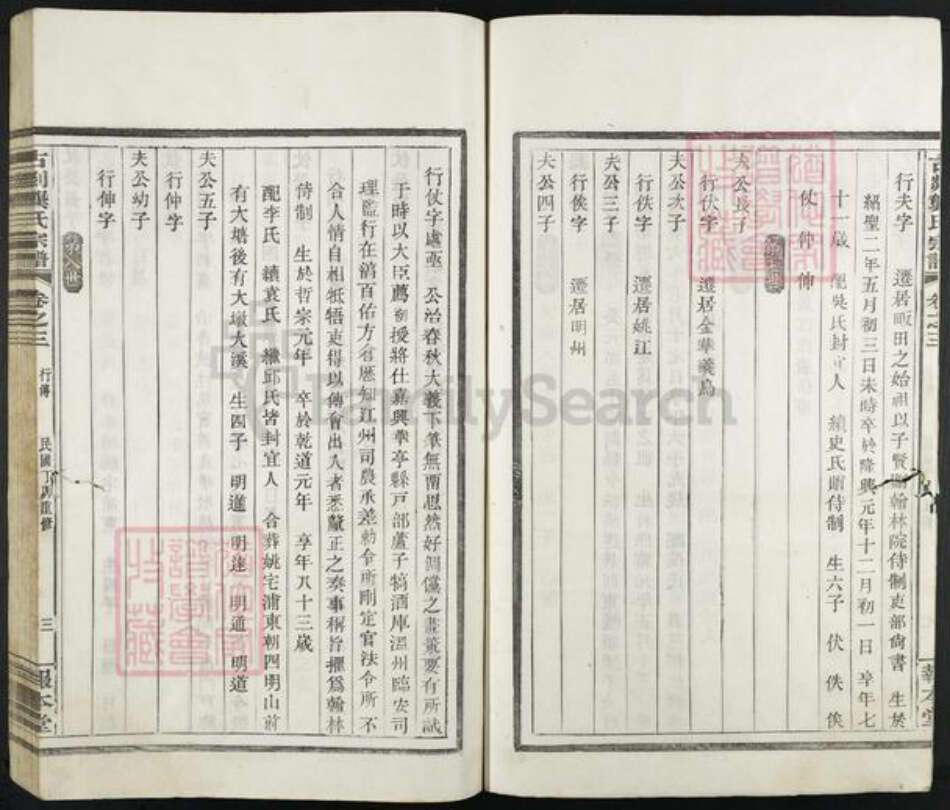 行夫字 遷居畈田之始祖以子賢贈翰林院侍制吏部尙書 生於
紹聖二年五月初三日未時卒於隆興元年十二月初一日 享年七
十一歲 配吳氏封宜人 續史氏贈侍制 生六子 伏 佚 俟
仗 仲 伸
夫公長子
行伏字 遷居金華義烏
夫公次子
行佚字 遷居姚江
夫公三子
行俟字 遷居明州
夫公四子
行仗字處亟 公治春秋大義下筆無凿思然好倜儻之畫策要有所試
于時以大臣薦初授將仕嘉興華亭縣戸部蘆子犒酒庫溫州臨安司
理監行在諸百佑方有歷知江州司農承差勅令所刪定官法令所不
合人情自相牴牾吏得以傳會出入者悉釐正之奏事稱旨擢爲翰林
侍制 生於哲宗元年 卒於乾道元年 享年八十三歲
配李氏 續袁氏 繼邱氏皆封宜人 合葬姚宅浦東朝四明山前
有大塘後有大墩大溪 生四子 明進 明達 明通 明道
夫公五子
行仲字
夫公幼子
行伸字
卷之三 行傳 民國丁 重修 三 報本堂
FamilySearch